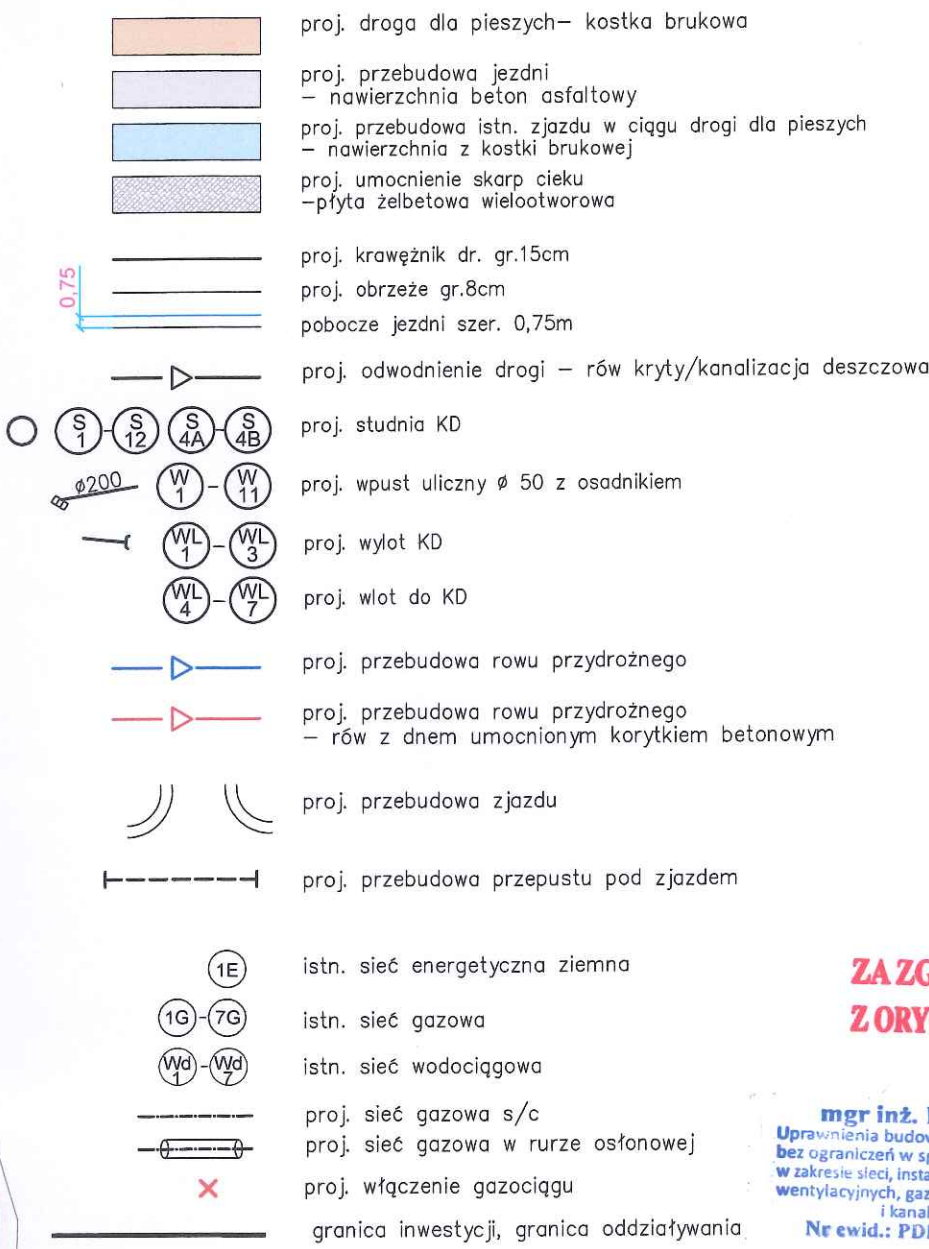 proj. droga dla pieszych– kostka brukowa
proj. przebudowa jezdni
– nawierzchnia beton asfaltowy
proj. przebudowa istn. zjazdu w ciągu drogi dla pieszych
– nawierzchnia z kostki brukowej
proj. umocnienie skarp cieku
–płyta żelbetowa wielootworowa
proj. krawężnik dr. gr.15cm
0,75
proj. obrzeże gr.8cm
pobocze jezdni szer. 0,75m
proj. odwodnienie drogi – rów kryty/kanalizacja deszczowa
S 1 - S 12 S 4A - S 4B proj. studnia KD
ø200 W 1 - W 11 proj. wpust uliczny ø 50 z osadnikiem
WL 1 - WL 3 proj. wylot KD
WL 4 - WL 7 proj. wlot do KD
proj. przebudowa rowu przydrożnego
proj. przebudowa rowu przydrożnego
– rów z dnem umocnionym korytkiem betonowym
proj. przebudowa zjazdu
proj. przebudowa przepustu pod zjazdem
1E istn. sieć energetyczna ziemna
1G - 7G istn. sieć gazowa
Wd 1 - Wd 7 istn. sieć wodociągowa
proj. sieć gazowa s/c
proj. sieć gazowa w rurze osłonowej
proj. włączenie gazociągu
granica inwestycji, granica oddziaływania
ZA ZG
Z ORY
mgr inż.
Uprawnienia budow
bez ograniczeń w sp
w zakresie sieci, insta
wentylacyjnych, gaz
i kanal
Nr ewid.: PD